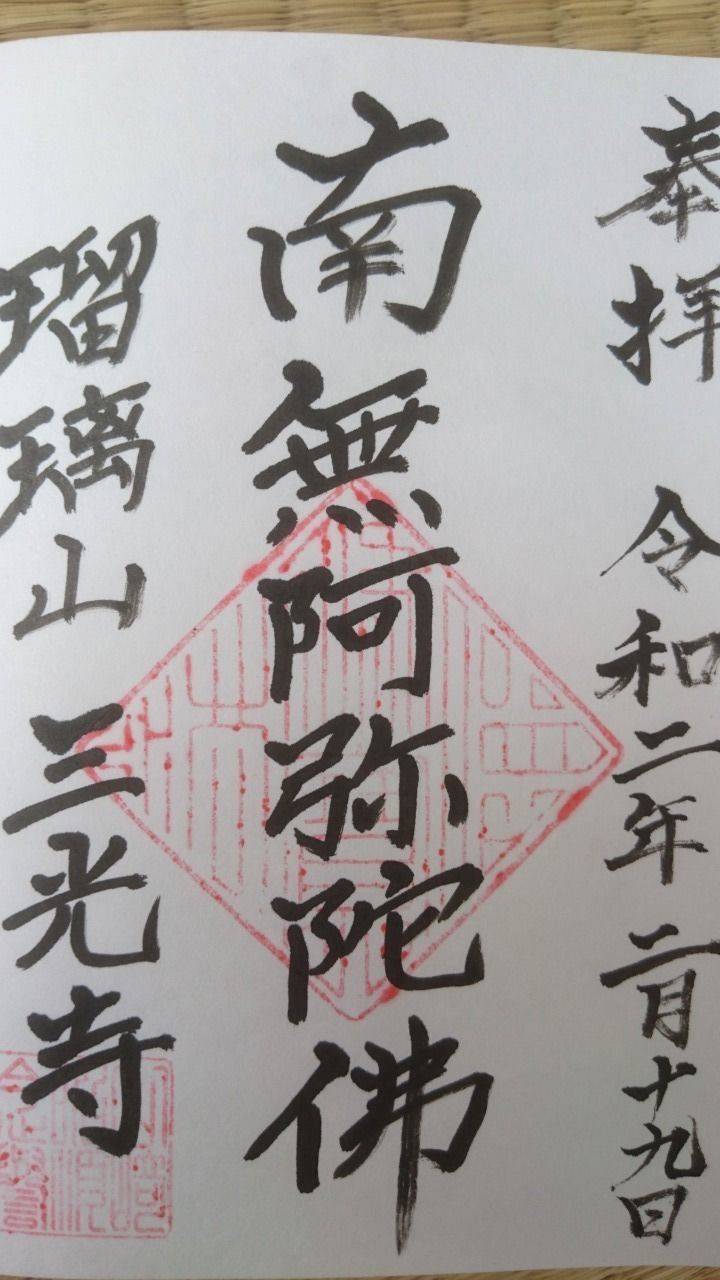 奉拝 令和二年二月十九日
南無阿弥陀佛
瑠璃山 三光寺